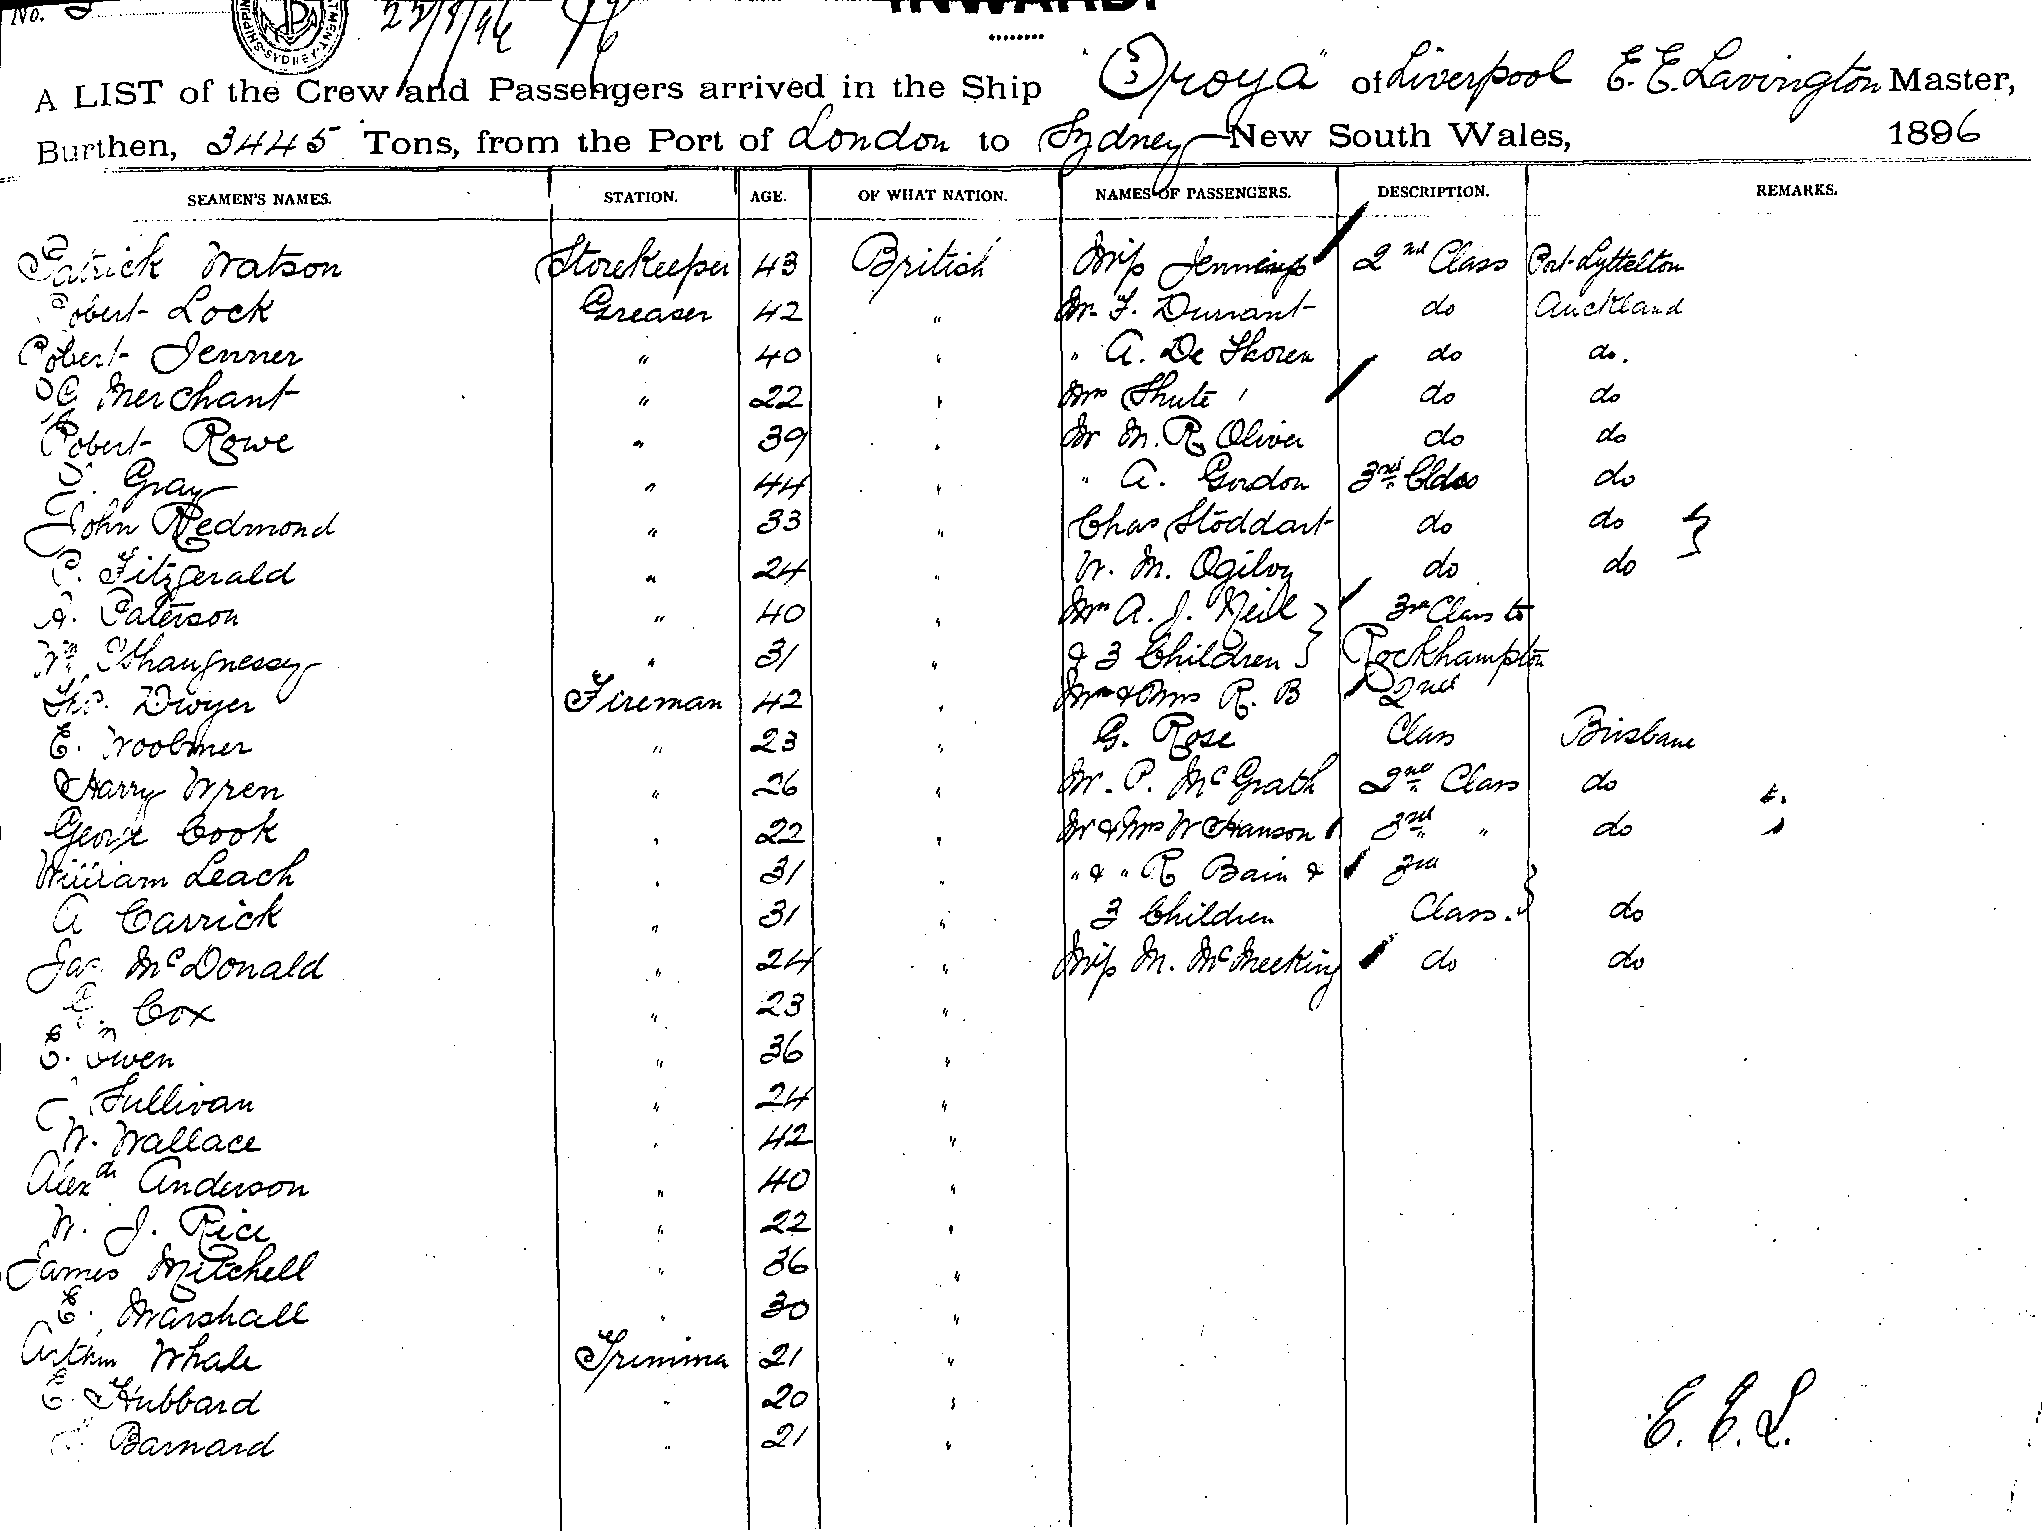 No. 5
22/8/96
INWARD.
A LIST of the Crew and Passengers arrived in the Ship "Oroya" of Liverpool E. E. Lavington Master,
Burthen, 3445 Tons, from the Port of London to Sydney New South Wales, 1896
SEAMEN'S NAMES. STATION. AGE. OF WHAT NATION. NAMES OF PASSENGERS. DESCRIPTION. REMARKS.
Patrick Watson Storekeeper 43 British Miss Jennings 2nd Class Port Lyttelton
Robert Lock Greaser 42 " Mr. F. Durrant do Auckland
Robert Jenner " 40 " " A. De do do.
Merchant " 22 " Mrs Shute do do
Robert Rowe " 39 " Mr M. R. Oliver do do
Gray " 44 " " A. Gordon 3rd Class do
John Redmond " 33 " Chas Stoddart do do
P. Fitzgerald " 24 " W. M. Ogilvy do do
A. Paterson " 40 " Mrs A. J. Neil 3rd Class to
Wm. " 31 " & 3 Children Rockhampton
Dwyer Fireman 42 " Mr & Mrs R. B 2nd
E. " 23 " G. Rose Class Brisbane
Harry Wren " 26 " Mr. P. McGrath 2nd Class do
George Cook " 22 " Mr & Mrs W Hanson 3rd " do
William Leach " 31 " " & " R Bain & 3rd
A Carrick " 31 " 3 Children Class. do
Jas. McDonald " 24 " Miss M. McMeeking do do
Cox " 23 "
E. Owen " 36 "
Sullivan " 24 "
W. Wallace " 42 "
Alexdr Anderson " 40 "
W. J. Rice " 22 "
James Mitchell " 36 "
E. Marshall " 30 "
Arthur Whale Trimmer 21 "
E. Hubbard " 20 "
Barnard " 21 "
E. E. L.